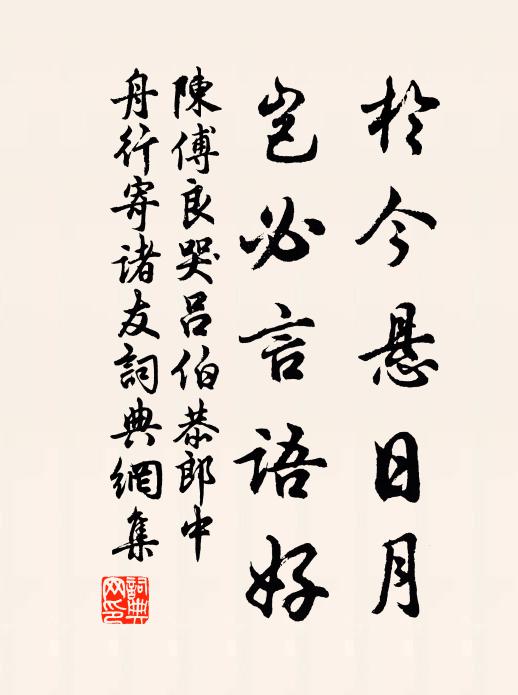 於今懸日月
豈必言語好
陳傅良哭呂伯恭郎中
舟行寄諸友詞典網集
詞典網印